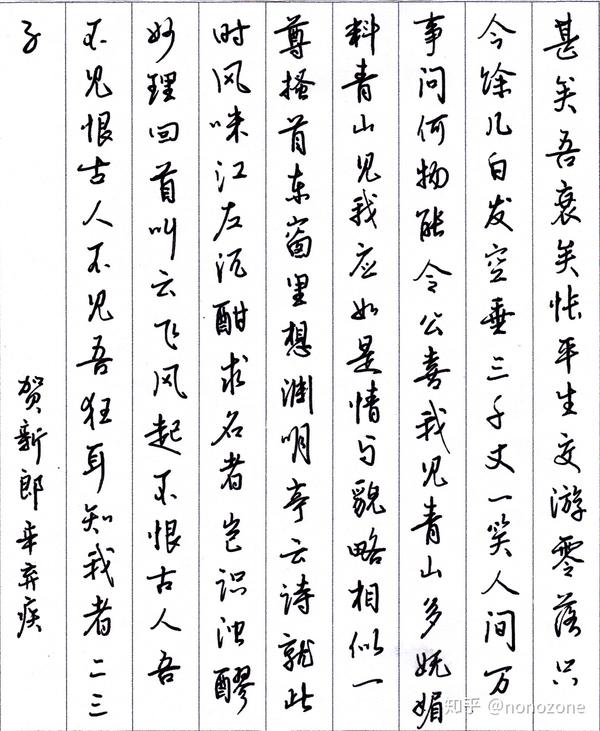 甚矣吾衰矣怅平生交游零落只
今馀几白发空垂三千丈一笑人间万
事问何物能令公喜我见青山多妩媚
料青山见我应如是情与貌略相似一
尊搔首东窗里想渊明亭云诗就此
时风味江左沉酣求名者岂识浊醪
妙理回首叫云飞风起不恨古人吾
不见恨古人不见吾狂耳知我者二三
子
贺新郎辛弃疾
知乎 @nonozone